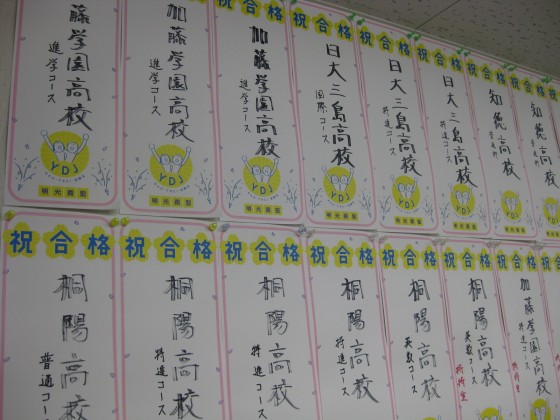 藤学園高校
進学コース
YDJ
明光義塾
加藤学園高校
進学コース
YDJ
明光義塾
祝合格
加藤学園高校
進学コース
YDJ
明光義塾
祝合格
日大三島高校
国際コース
YDJ
明光義塾
祝合格
日大三島高校
特進コース
YDJ
明光義塾
祝合格
日大三島高校
特進コース
YDJ
祝合格
知徳高校
祝合格
知徳高校
祝合格
桐陽高校
普通コース
祝合格
桐陽高校
特進コース
祝合格
桐陽高校
特進コース
祝合格
桐陽高校
特進コース
祝合格
桐陽高校
英数コース
祝合格
桐陽高校
英数コース
祝合格
加藤学園高校
特進コース